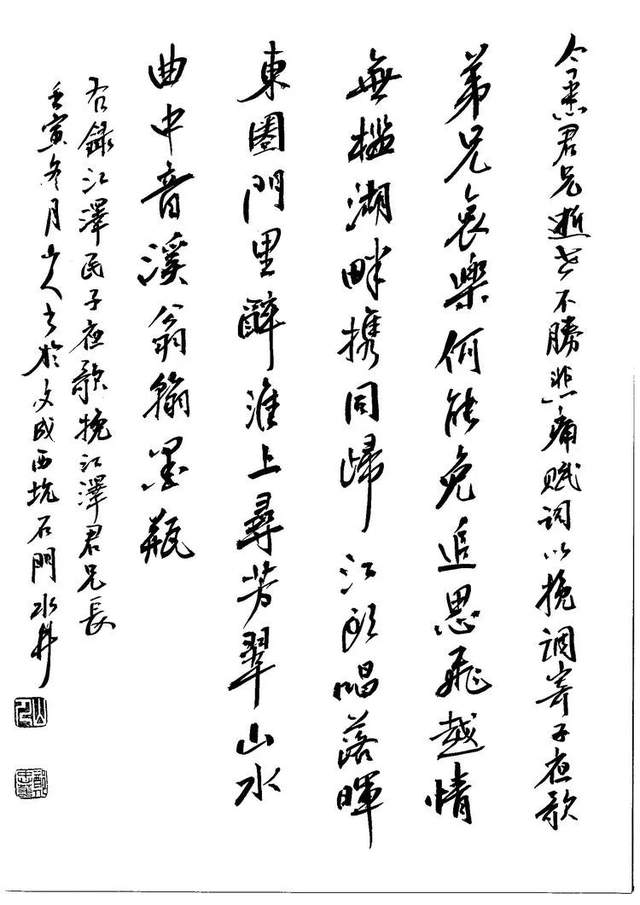 今悉君兄逝世不勝悲痛賦詞以挽調寄子夜歌
弟兄哀樂何能免追思飛越情
無檻湖畔携同歸江頭唱落暉
東圈門里醉淮上尋芳翠山水
曲中音溪翁翰墨瓶
右錄江澤民子夜歌挽江澤君兄長
壬寅冬月山人書於文成西坑石門水井